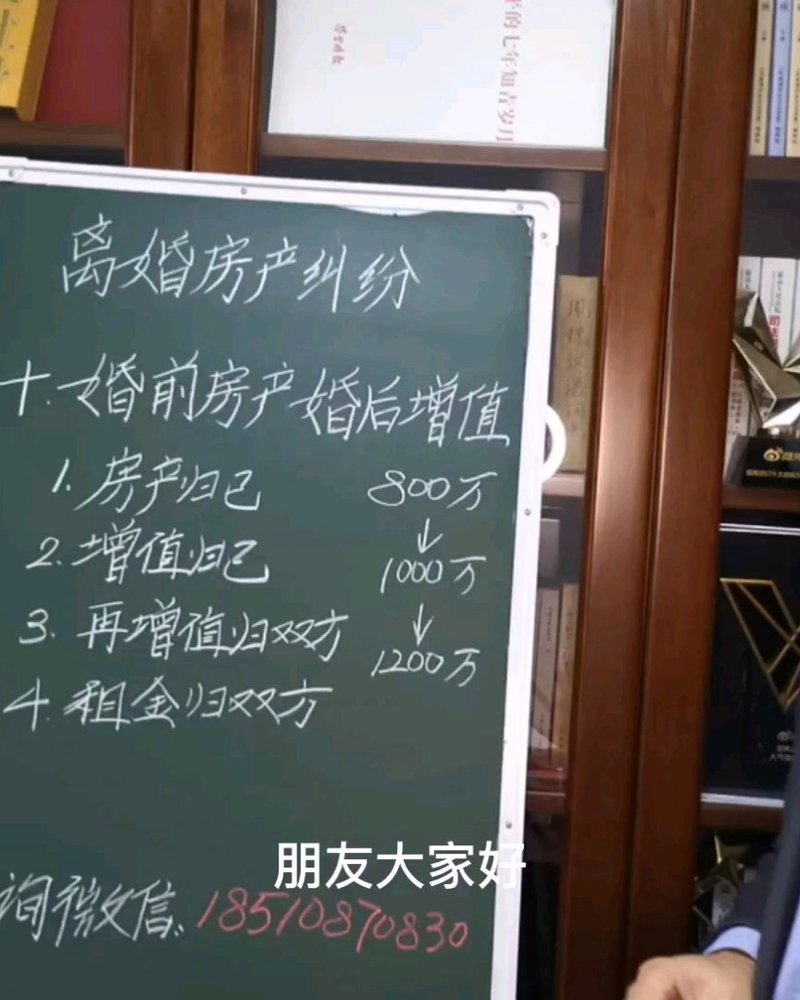 的七年知青岁月
离婚房产纠纷
十.婚前房产婚后增值
1.房产归己 800万
↓
2.增值归己 1000万
↓
3.再增值归双方 1200万
4.租金归双方
朋友大家好
询微信:18510870830